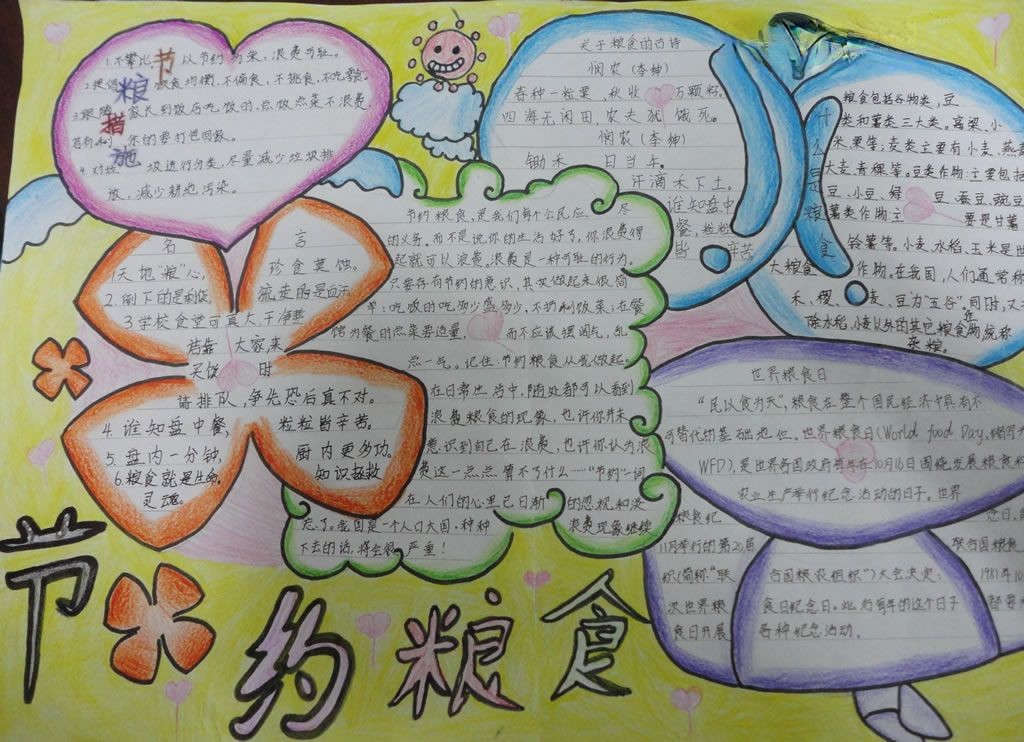 节粮措施
1.不攀比 以节约为荣,浪费可耻。
饮食均衡,不偏食,不挑食,不吃零食。
家长到饭店吃饭时,点饭点菜不浪费,
若有剩 余的要打包回家。
4.对垃 圾进行分类,尽量减少垃圾排
放,减少耕地污染。
名 言
1.天地“粮”心, 珍食莫蚀。
2.倒下的是剩饭, 流走的是血汗。
3.学校食堂可真大,干净整
洁靠 大家来
买饭 时
请排队,争先恐后真不对。
4.谁知盘中餐, 粒粒皆辛苦。
5.盘内一分钟, 厨内更多功。
6.粮食就是生命, 知识拯救
灵魂。
节约粮食,是我们每个公民应 尽
的义务。而不是说你的生活好了,你浪费得
起就可以浪费。浪费是一种可耻的行为。
只要存有节约的意识,其实做起来很简
单:吃饭时吃多少盛多少,不扔剩饭菜;在餐
馆为餐时点菜要适量, 而不应该摆阔气,乱
点一气。记住:节约粮食从我做起。
在日常生活中,随处都可以看到
浪费粮食的现象,也许你并未
意识到自己在浪费,也许你认为浪
费这一点点算不了什么……“节约”一词
在人们的心里已日渐 的忽视和淡
忘了。我国是一个人口大国,种种 浪费现象继续
下去的话,将会很 严重!
关于粮食的古诗
悯农(李绅)
春种一粒粟,秋收 万颗籽。
四海无闲田,农夫犹 饿死。
悯农(李绅)
锄禾 日当午。
汗滴禾下土。
谁知盘中
餐,粒粒
皆 辛苦
什么是粮食
粮食包括谷物类,豆
类和薯类三大类。高粱、小
米、粟等;麦类主要有小麦、燕麦
大麦、青稞等。豆类作物:主要包括
豆、小豆、绿 豆、蚕豆、豌豆
薯类作物:主 要是甘薯
铃薯等。小麦、水稻、玉米是世
大粮食 作物。在我国,人们通常称
禾、稷、 麦、豆为“五谷”。同时,又
除水稻,小麦以外的其它粮食作物统称
杂粮。
世界粮食日
“民以食为天”,粮食在整个国民经济中具有不
可替代的基础地位。世界粮食日(World food Day,缩写为
WFD),是世界各国政府每年在10月16日围绕发展粮食和
农业生产举行纪念活动的日子。世界
粮食纪 念日,
11月举行的第20届 联合国粮食
织(简称“联 合国粮农组织”)大会决定: 1981年10
次世界粮 食日纪念日。此后每年的这个日子 都要
食日开展 各种纪念活动。
节约粮食